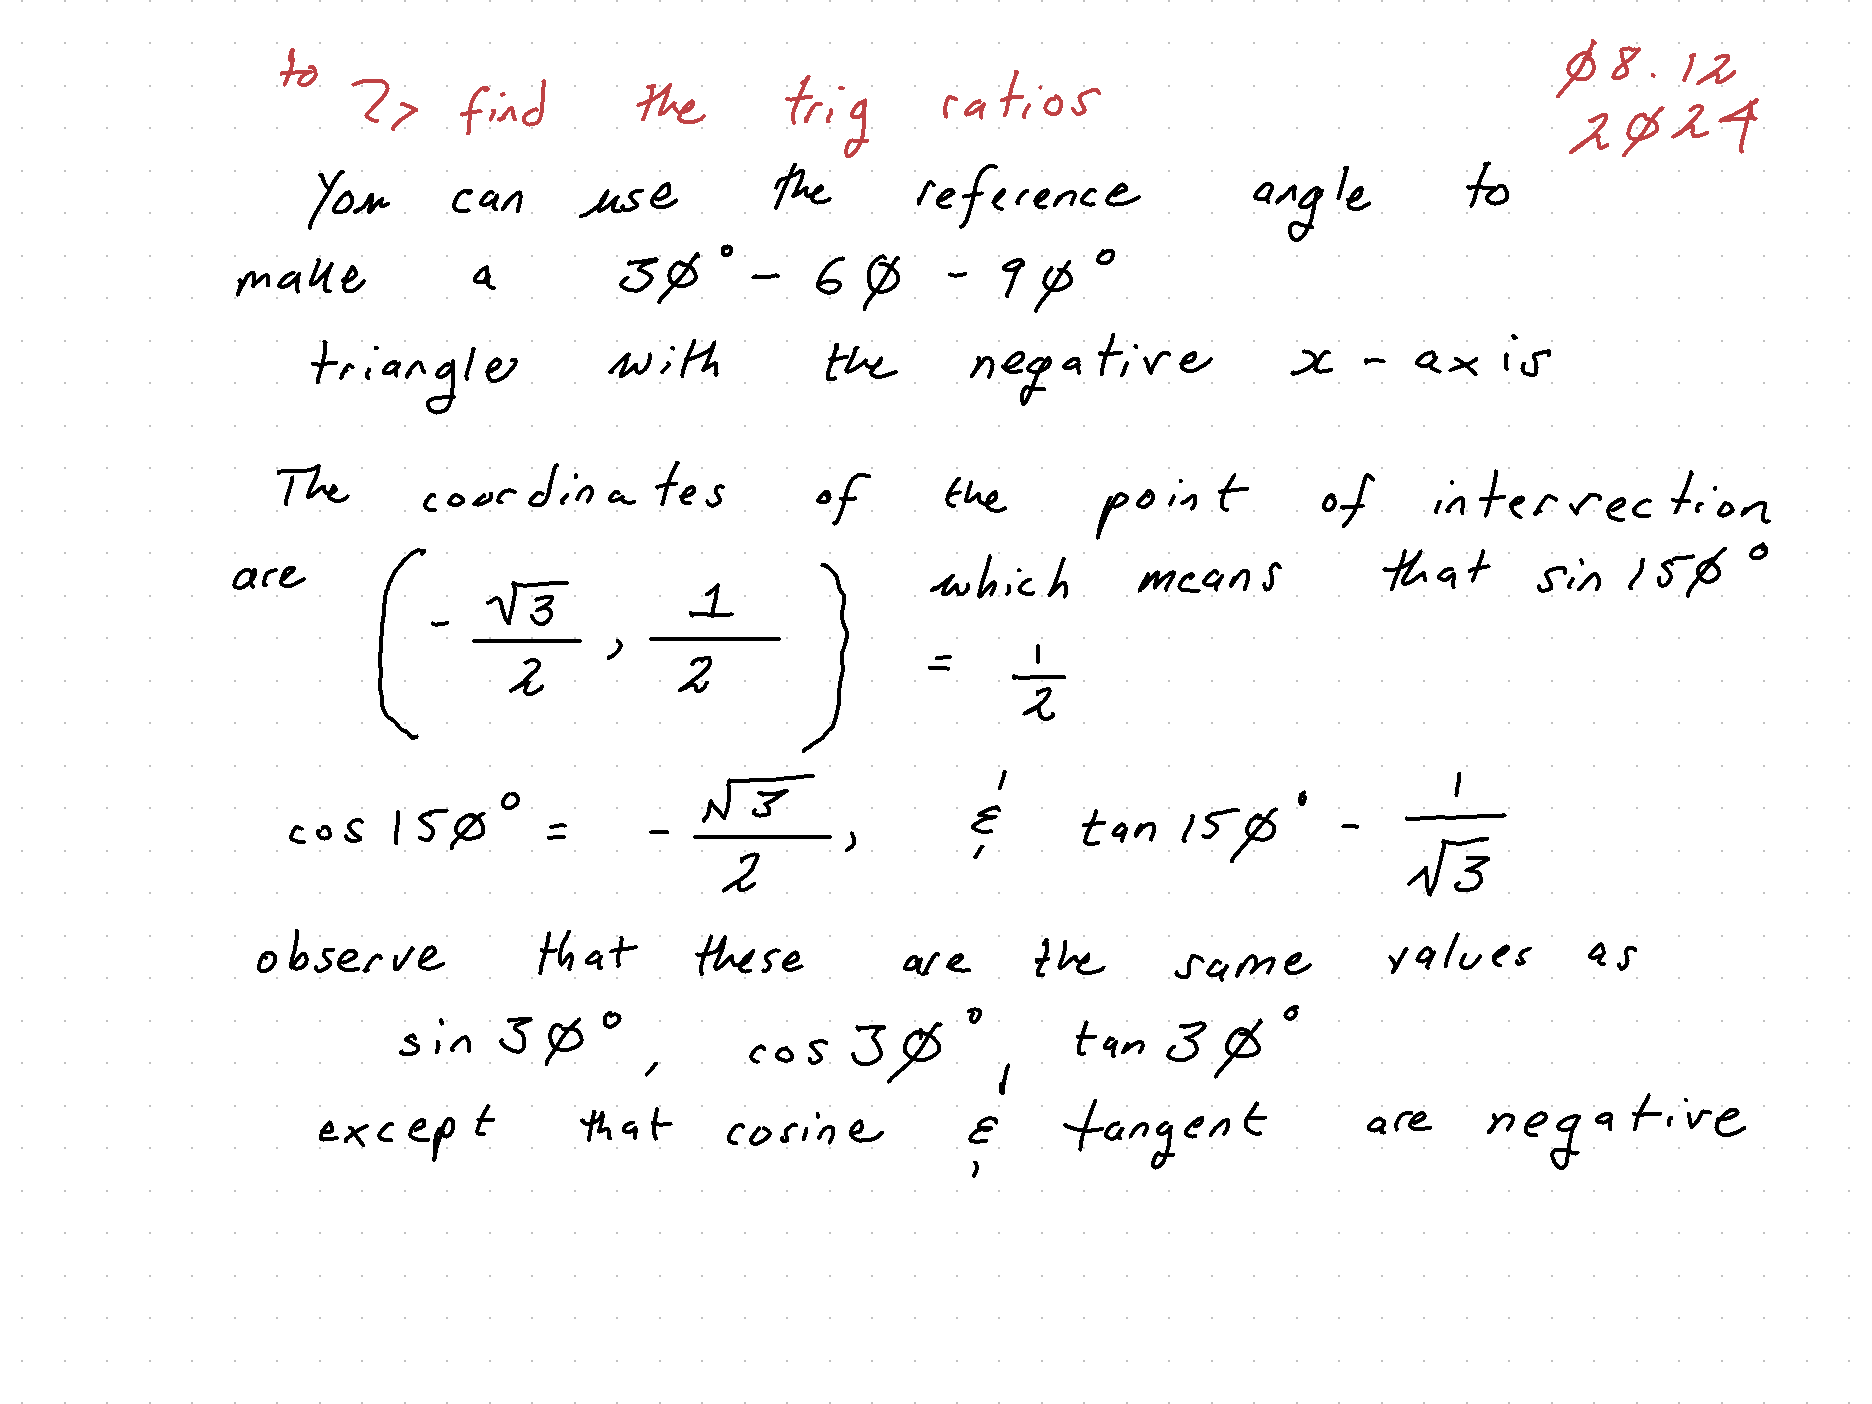 to
↳ find the trig ratios
08.12
2024
You can use the reference angle to
make a 30° - 60 - 90°
triangle with the negative x - axis
The coordinates of the point of intersection
are (-√3/2, 1/2) which means that sin 150°
= 1/2
cos 150° = -√3/2, & tan 150° - 1/√3
observe that these are the same values as
sin 30°, cos 30°, tan 30°
except that cosine & tangent are negative